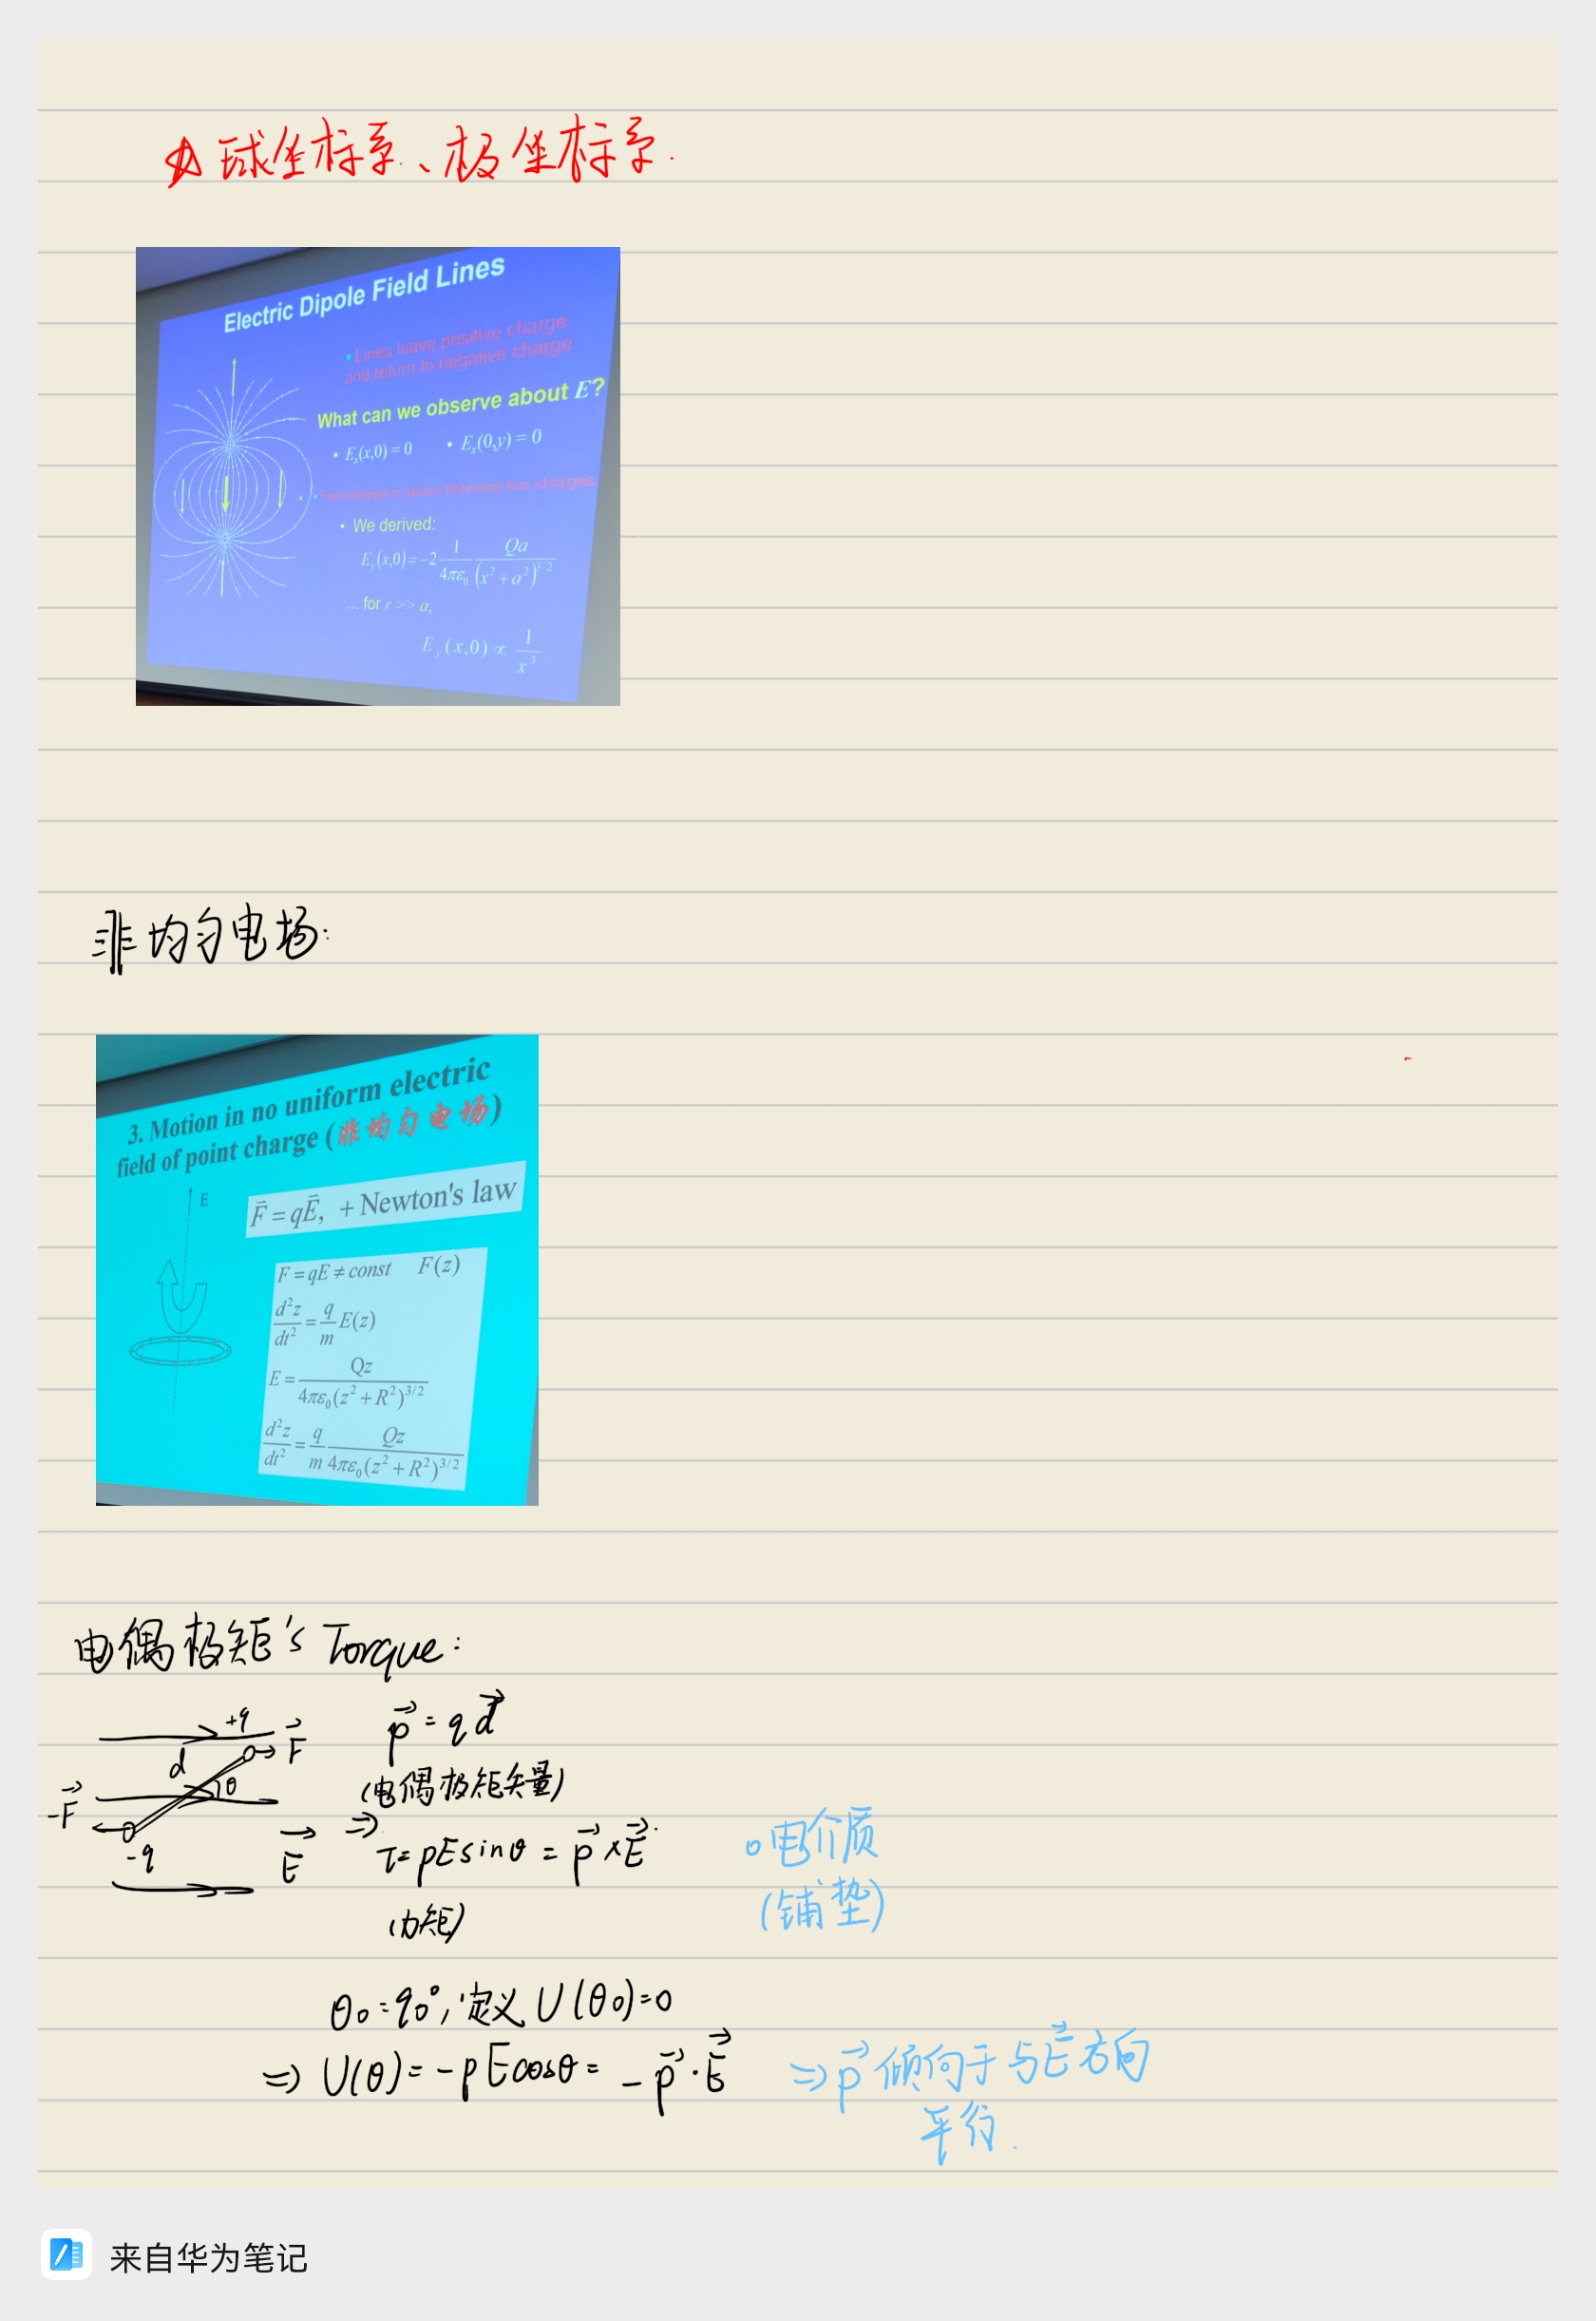 ☆球坐标系、极坐标系.
Electric Dipole Field Lines
• Lines leave positive charge
and return to negative charge
What can we observe about E?
• Eₓ(x,0) = 0 • Eₓ(0,y) = 0
• Field largest in space between two charges
• We derived:
E_y(x,0) = -2 1/(4πε₀) Qa/(x² + a²)^(3/2)
... for r >> a,
E_y(x,0) ∝ 1/x³
非均匀电场:
3. Motion in no uniform electric
field of point charge (非均匀电场)
E
F⃗ = qE⃗, + Newton's law
F = qE ≠ const F(z)
d²z/dt² = q/m E(z)
E = Qz/(4πε₀(z² + R²)^(3/2))
d²z/dt² = q/m Qz/(4πε₀(z² + R²)^(3/2))
电偶极矩's Torque:
+q F⃗
d θ
-F⃗
-q E⃗
p⃗ = q d⃗
(电偶极矩矢量)
⇒ τ = pE sinθ = p⃗ × E⃗
(力矩)
○电介质
(铺垫)
θ₀ = 90°, 定义 U(θ₀) = 0
⇒ U(θ) = -pE cosθ = -p⃗·E⃗ ⇒ p⃗ 倾向于与E⃗方向
平行.
来自华为笔记